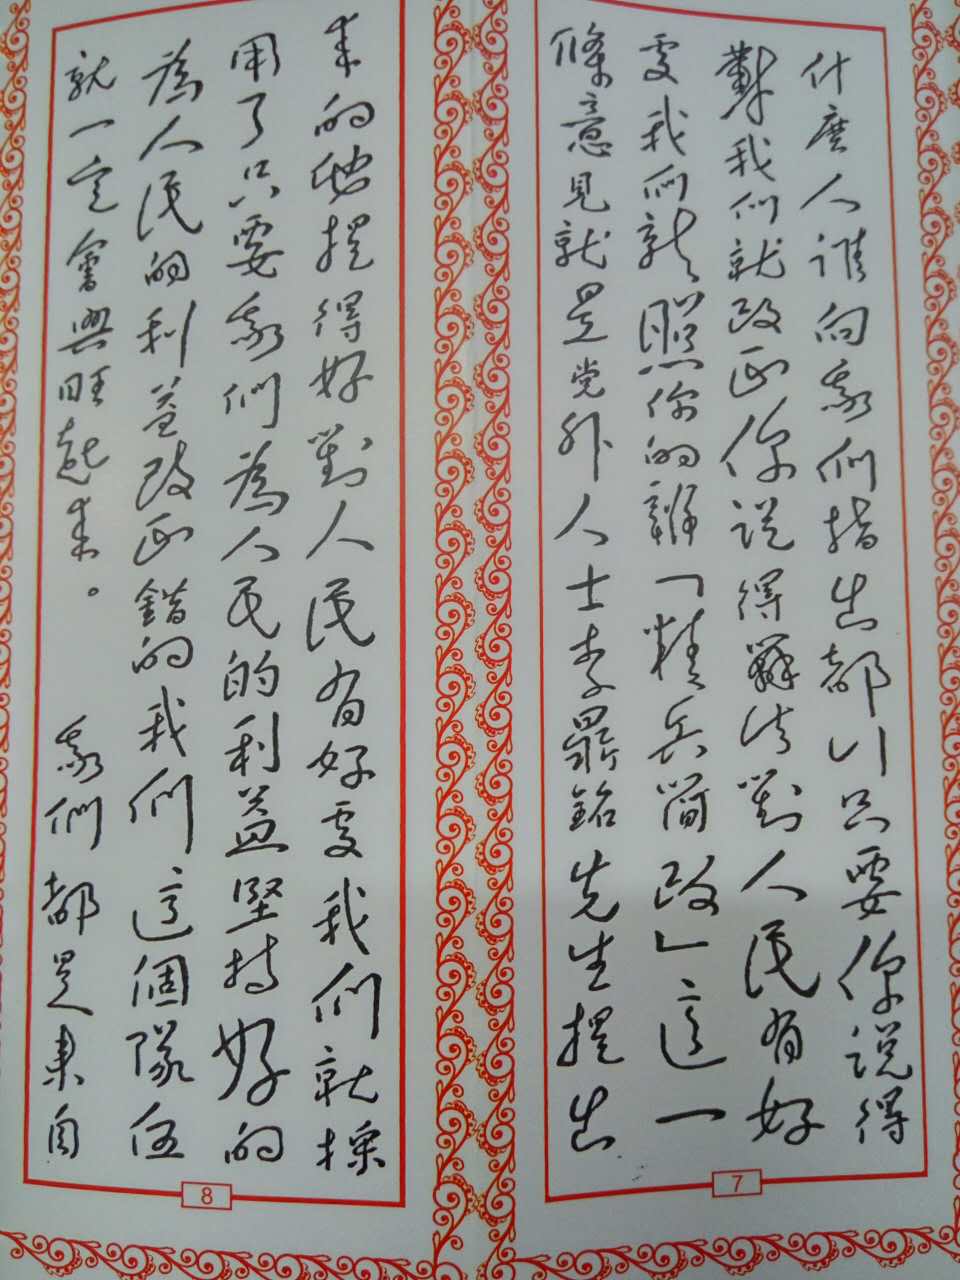 什麽人誰向我們指出都行只要你說得
對我們就改正你說得辦法對人民有好
處我們就照你的辦「精兵簡政」這一
條意見就是党外人士李鼎銘先生提出
7
来的他提得好對人民有好處我們就採
用了只要我們為人民的利益堅持好的
為人民的利益改正錯的我們這個隊伍
就一定會興旺起来。 我們都是来自
8